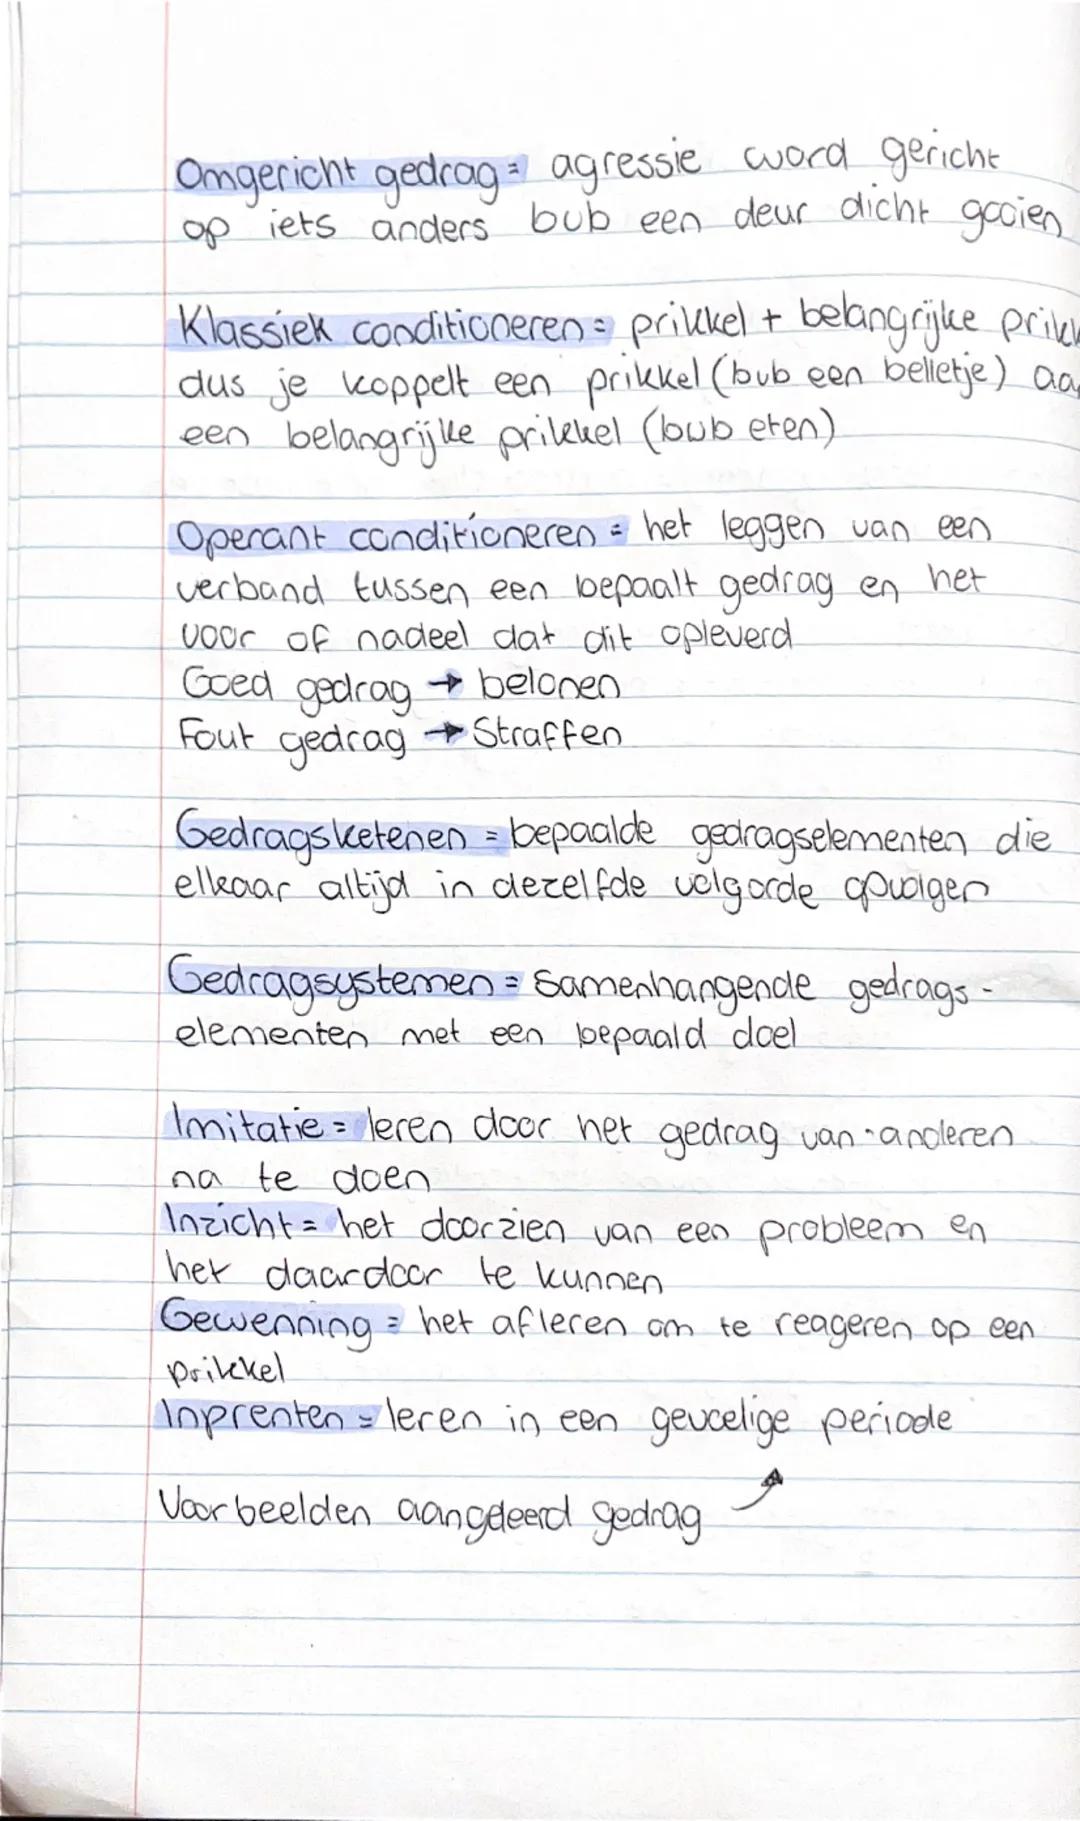 Omgericht gedrag = agressie word gericht
op iets anders bub een deur dicht gooien
Klassiek conditioneren = prikkel + belangrijke prikk
dus je koppelt een prikkel (bub een belletje) aa
een belangrijke prikkel (bub eten)
Operant conditioneren = het leggen van een
verband tussen een bepaalt gedrag en het
voor of nadeel dat dit opleverd
Goed gedrag → belonen
Fout gedrag → Straffen
Gedragsketenen = bepaalde gedragselementen die
elkaar altijd in dezelfde volgorde opvolgen
Gedragsystemen = Samenhangende gedrags-
elementen met een bepaald doel
Imitatie = leren door het gedrag van anderen
na te doen
Inzicht = het doorzien van een probleem en
het daardoor te kunnen
Gewenning = het afleren om te reageren op een
prikkel
Inprenten = leren in een gevoelige periode
Voorbeelden aangeleerd gedrag